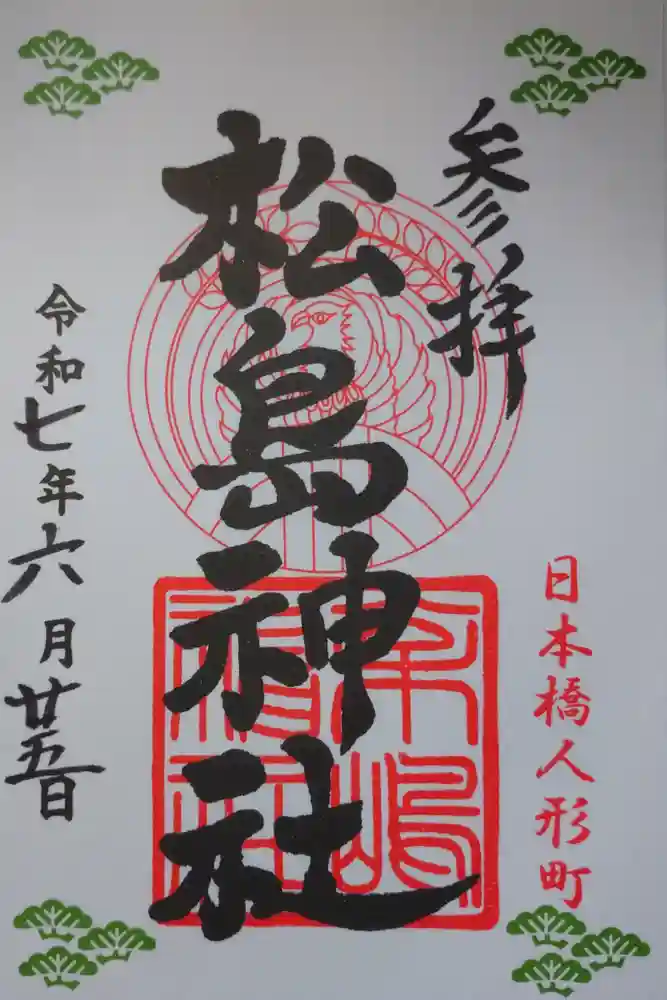 参拝
日本橋人形町
松島神社
令和七年六月廿五日